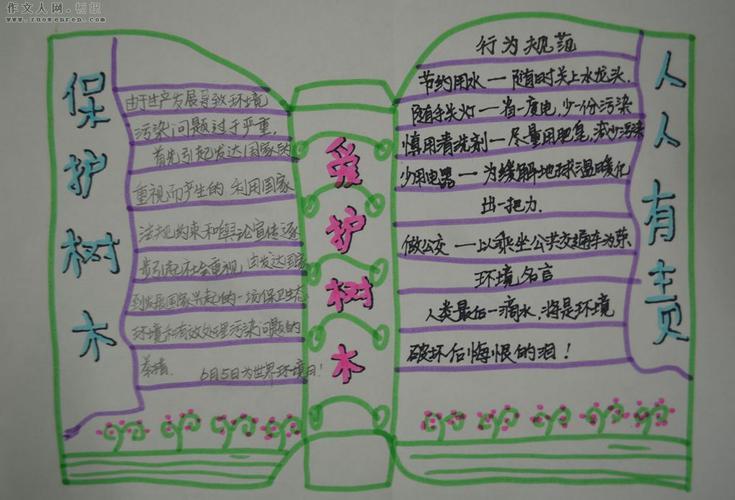 作文人网
www.zuowenren.com
保护树木
由于生产发展导致环境
污染问题过于严重,
首先引起发达国家的
重视而产生的.利用国家
法规约束和舆论宣传逐
步引起社会重视,由发达国家
到发展国家兴起的一项保卫生态
环境和有效处理污染问题的
6月5日为世界环境日!
爱护树木
行为规范
节约用水——随时关上水龙头.
随手关灯——省一度电,少一份污染
慎用清洗剂——尽量用肥皂,减少污染
少用电器——为缓解地球温暖化
出一把力.
做公交——以乘坐公共交通车为荣.
环境名言
人类最后一滴水,将是环境
破坏后悔恨的泪!
人人有责